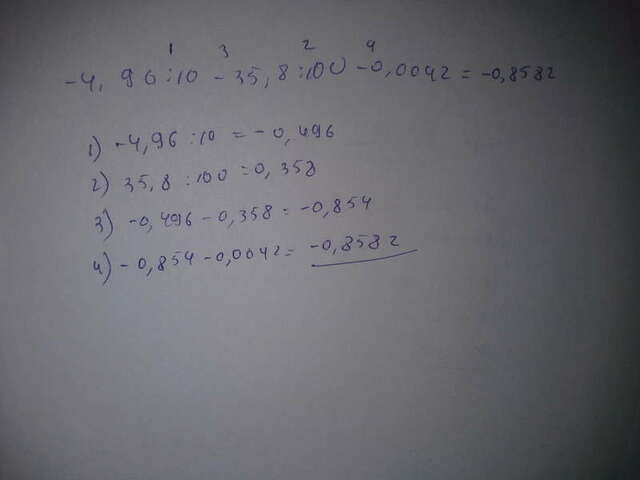 1 3 2 4
-4,96:10 -35,8:100 -0,0042 = -0,8582
1) -4,96 :10 = -0,496
2) 35,8 :100 =0,358
3) -0,496-0,358= -0,854
4) -0,854-0,0042= -0,8582